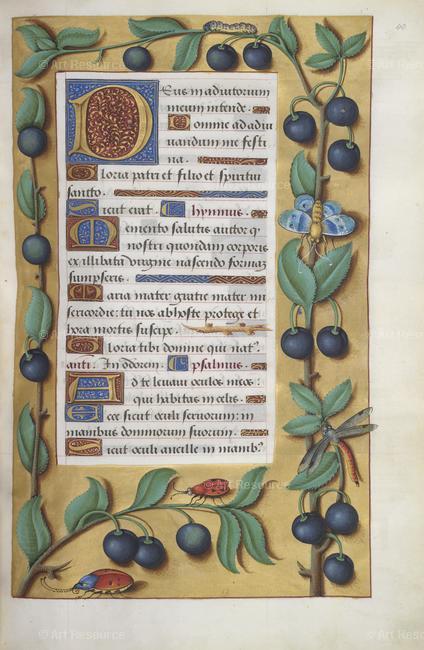 Eus in adiutorium
meum intende.
Domine ad adiu
uandum me festi
na.
Gloria patri et filio et spiritui
sancto.
Sicut erat. hymnus.
Memento salutis auctor q
nostri quondam corporis
ex illibata virgine nascendo formaz
sumpseris.
Maria mater gratie mater mi
sericordie: tu nos ab hoste protege et
hora mortis suscipe.
Gloria tibi domine qui nat9.
anti. In odorem. psalmus.
Ad te leuaui oculos meos:
qui habitas in celis.
Ecce sicut oculi seruorum: in
manibus dominorum suorum.
Sicut oculi ancille in manib9
© Art Resource